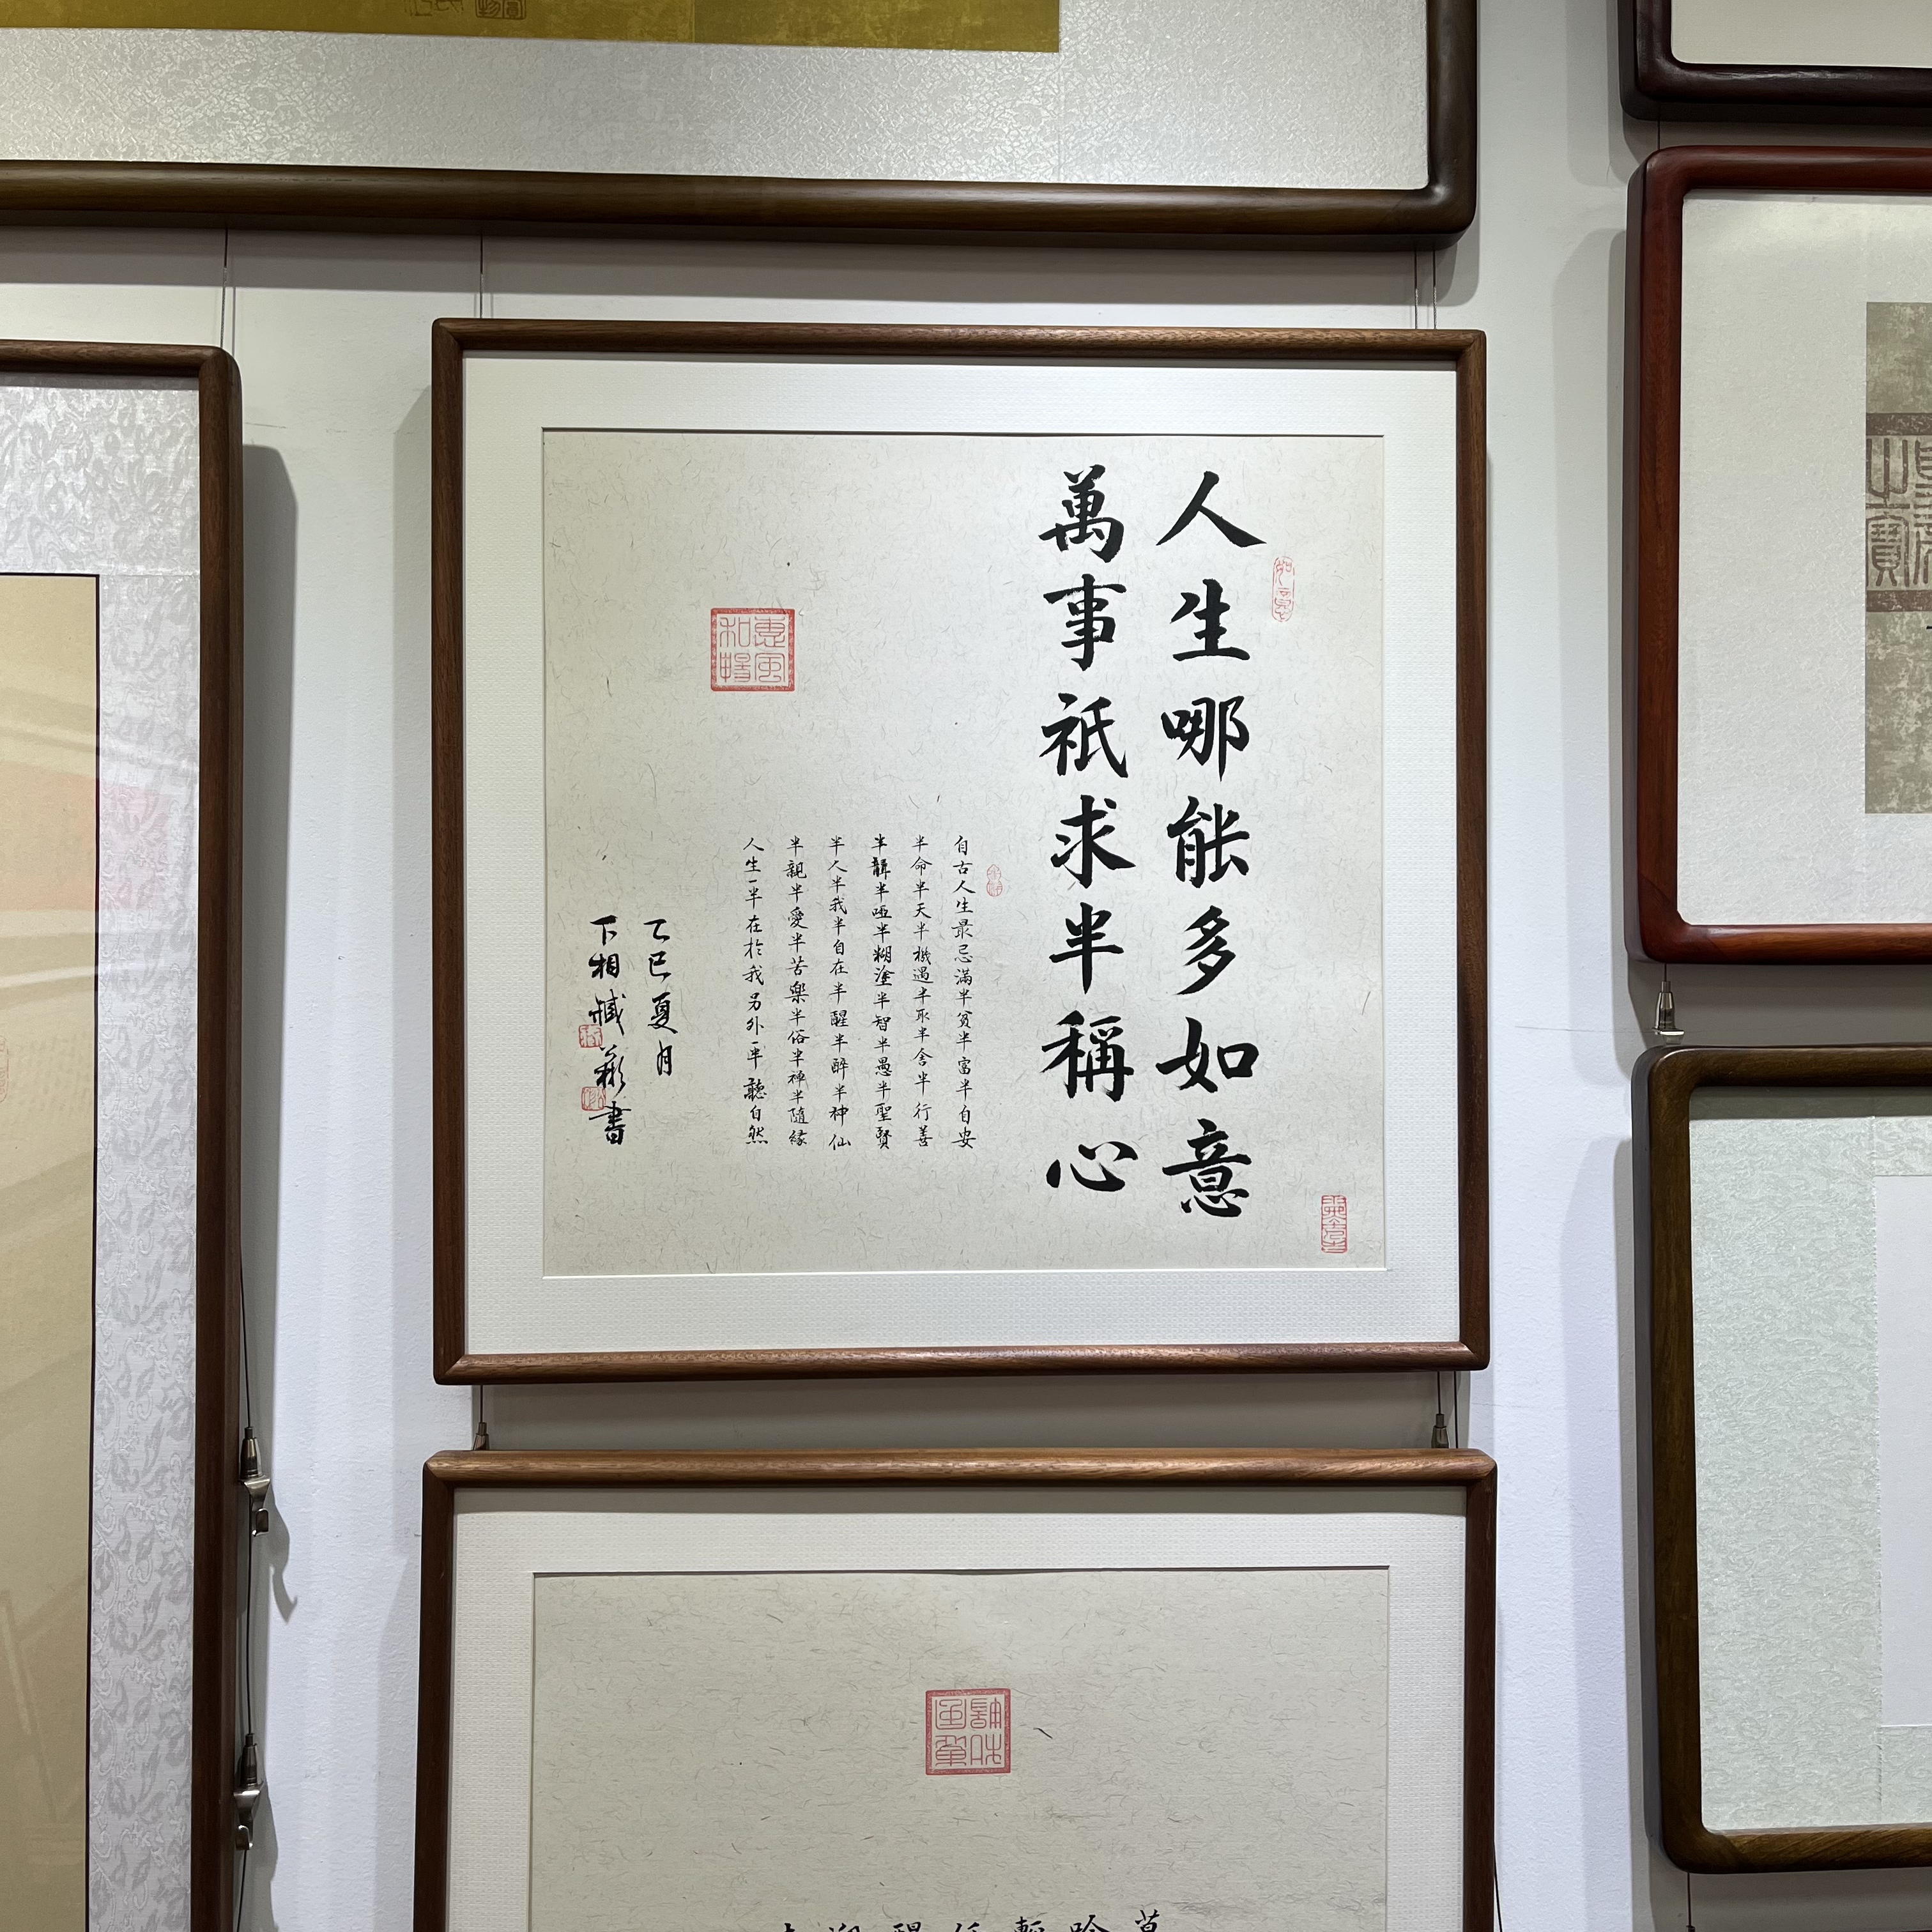 人生哪能多如意
萬事祇求半稱心
自古人生最忌滿半貧半富半自安
半命半天半機遇半取半舍半行善
半聾半啞半糊塗半智半愚半聖賢
半人半我半自在半醒半醉半神仙
半親半愛半苦樂半俗半禪半隨緣
人生一半在於我另外一半聽自然
乙巳夏月
下相臧彩書
惠風和暢
如意